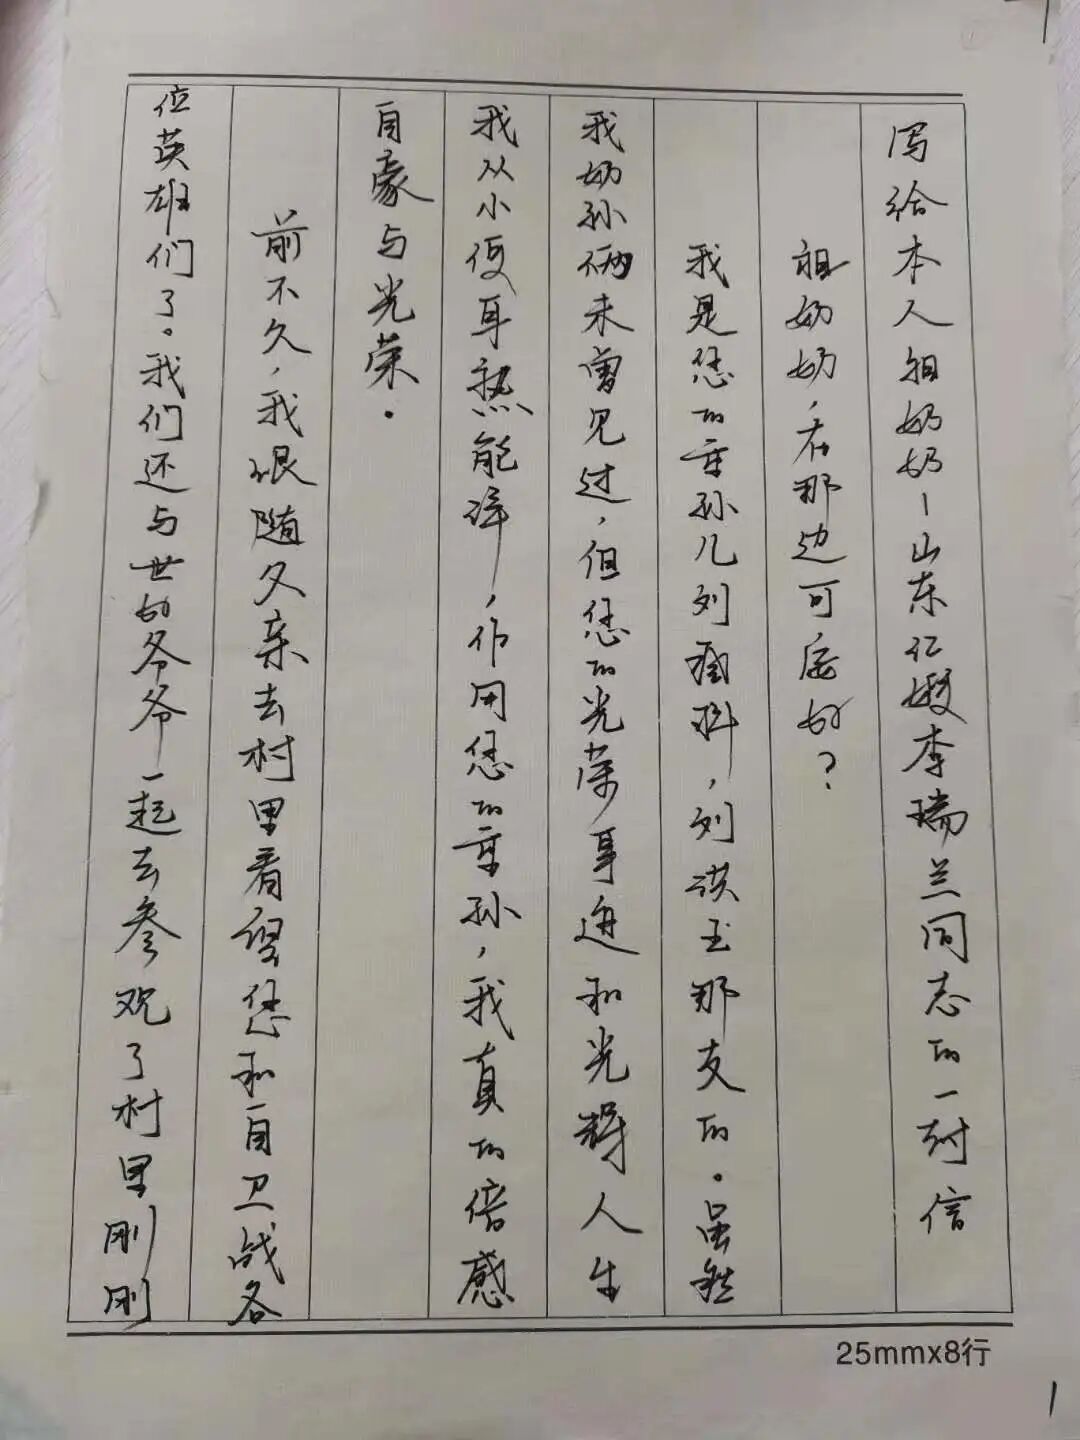 写给本人祖奶奶－山东仁嫂李瑞兰同志的一封信
祖奶奶，在那边可还好？
我是您的重孙儿刘，刘洪玉那支的。虽然
我奶孙俩未曾见过，但您的光荣事迹和光辉人生
我从小便耳熟能详，作用您的重孙，我真的倍感
自豪与光荣。
前不久，我跟随父亲去村里看望您和自卫战各
位英雄们了。我们还与世的爷爷一起去参观了村里刚刚
25mmx8行
1